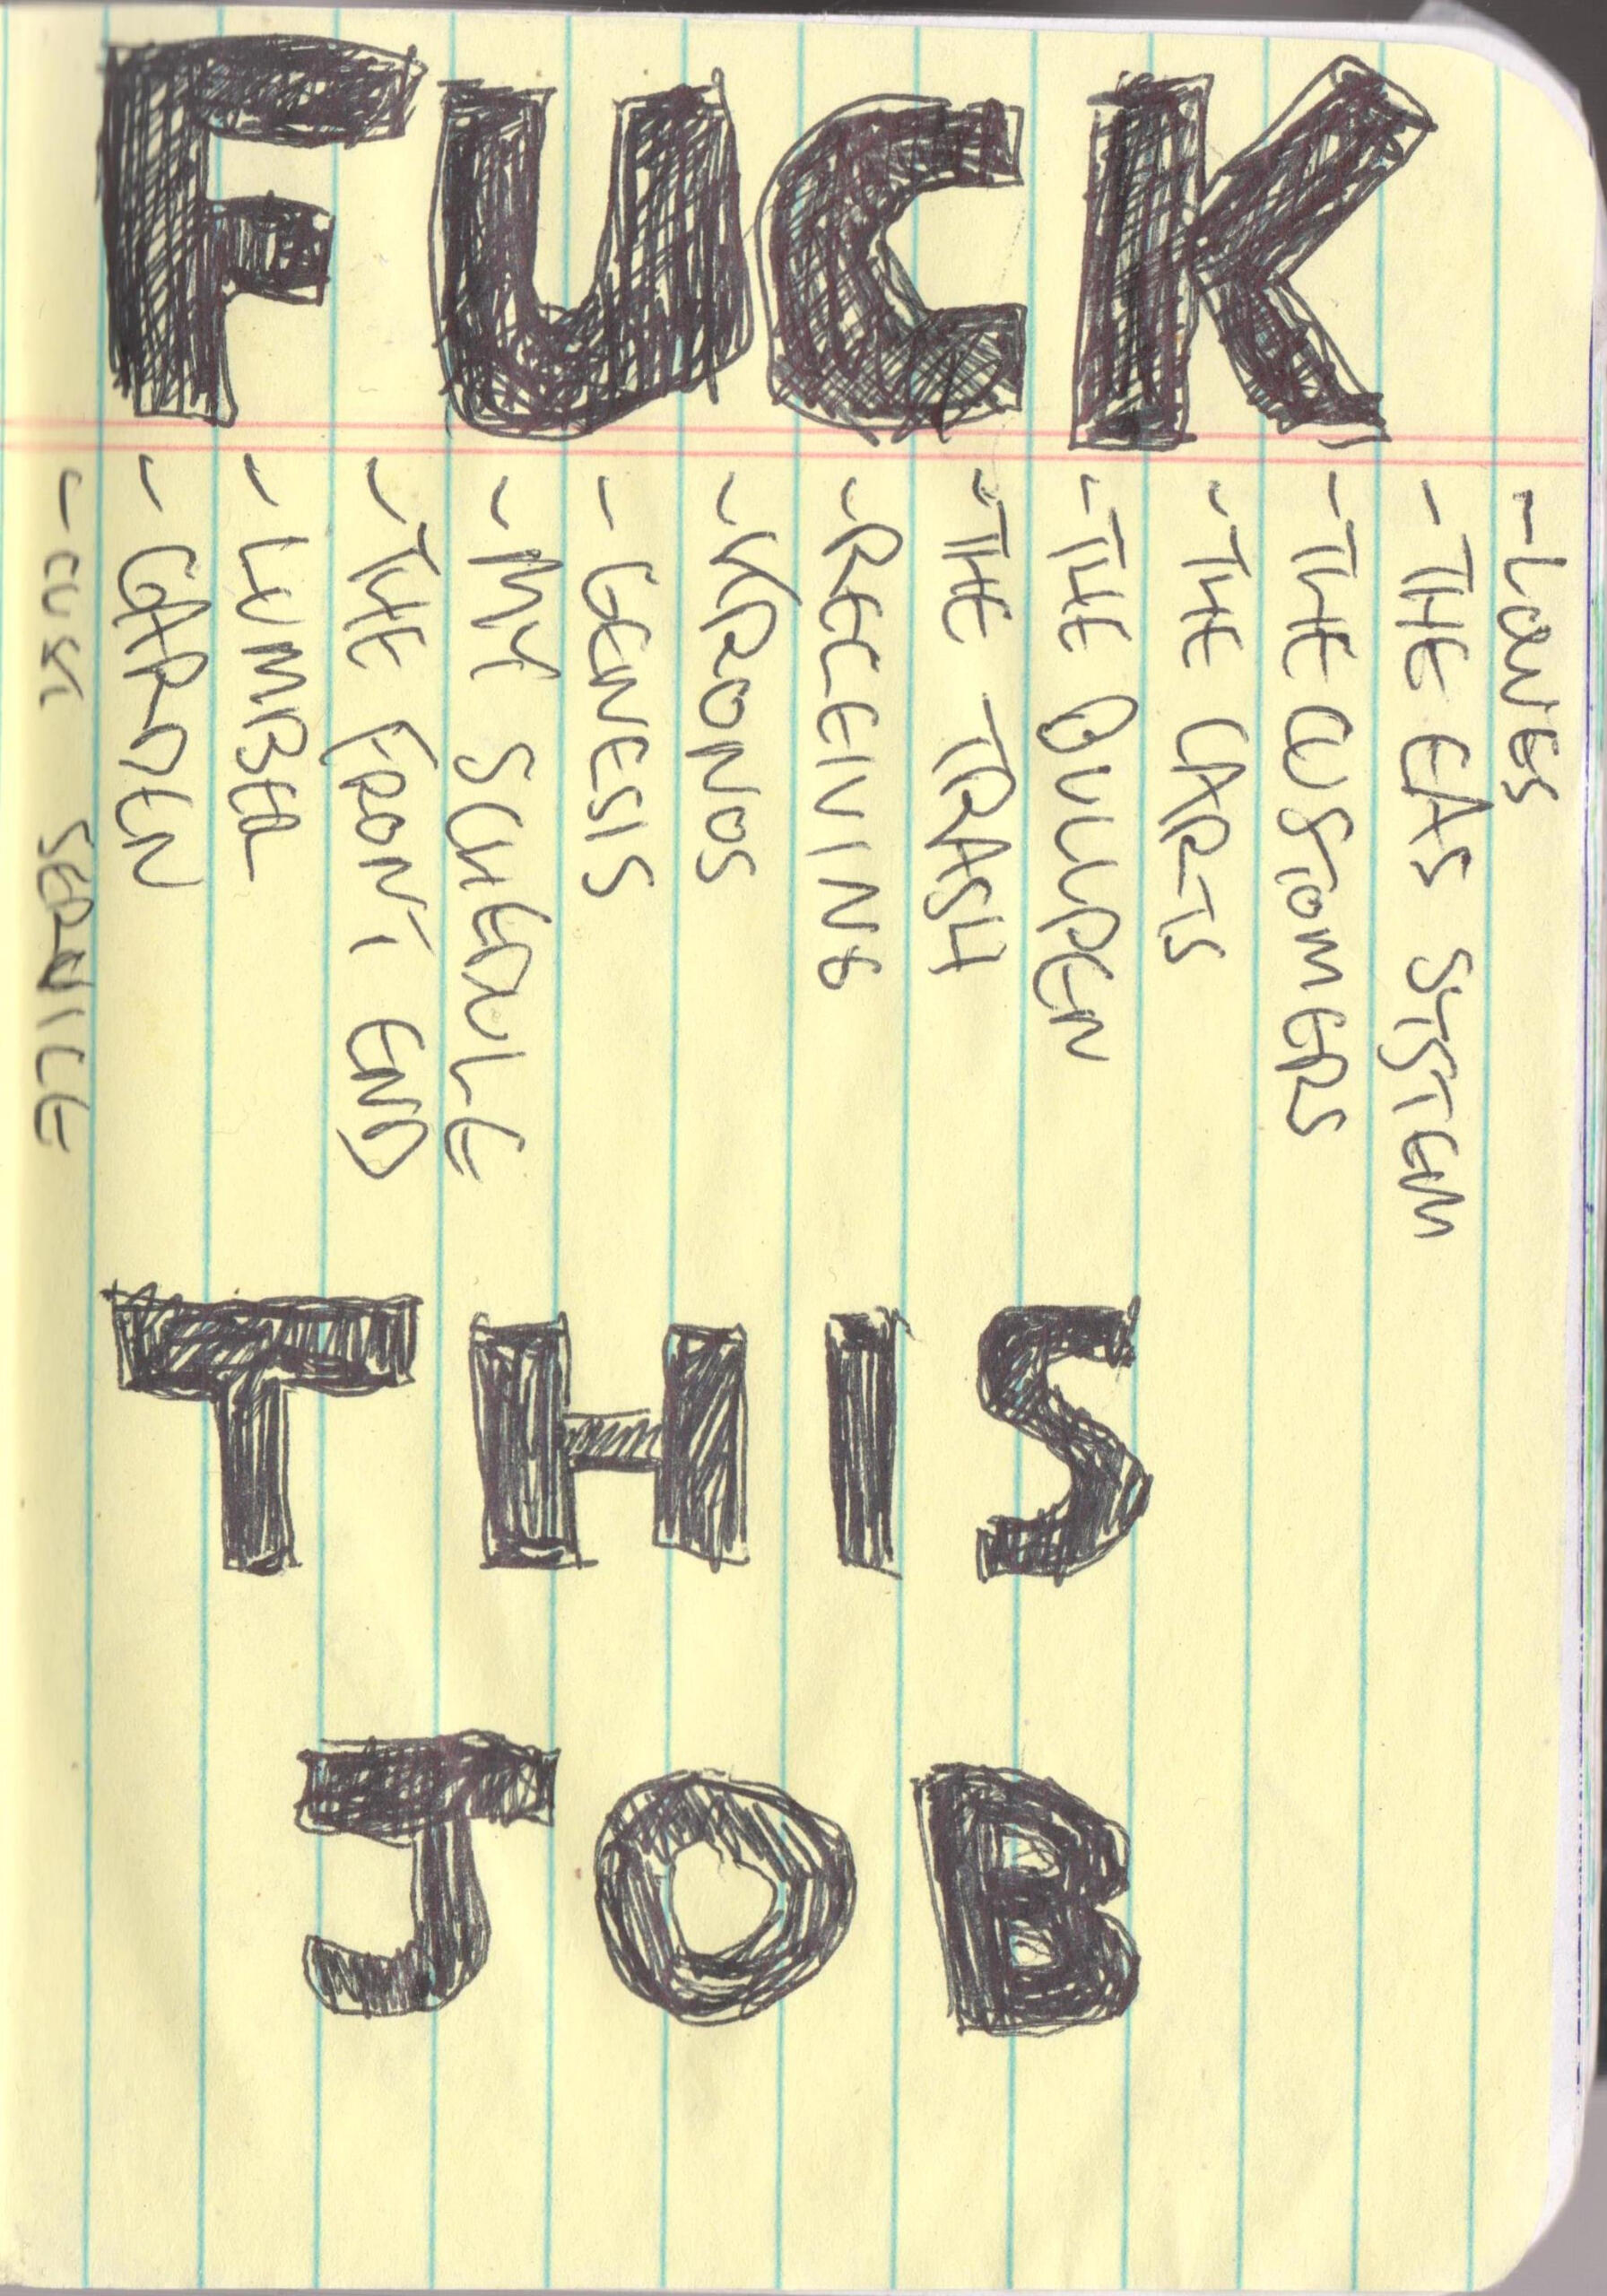 FUCK
- LOWES
- THE EAS SYSTEM
- THE CUSTOMERS
- THE CARTS
- THE BULLPEN
- THE TRASH
- RECEIVING
- KRONOS
- GENESIS
- MY SCHEDULE
- THE FRONT END
- LUMBER
- GARDEN
- CUST SERVICE
THIS
JOB